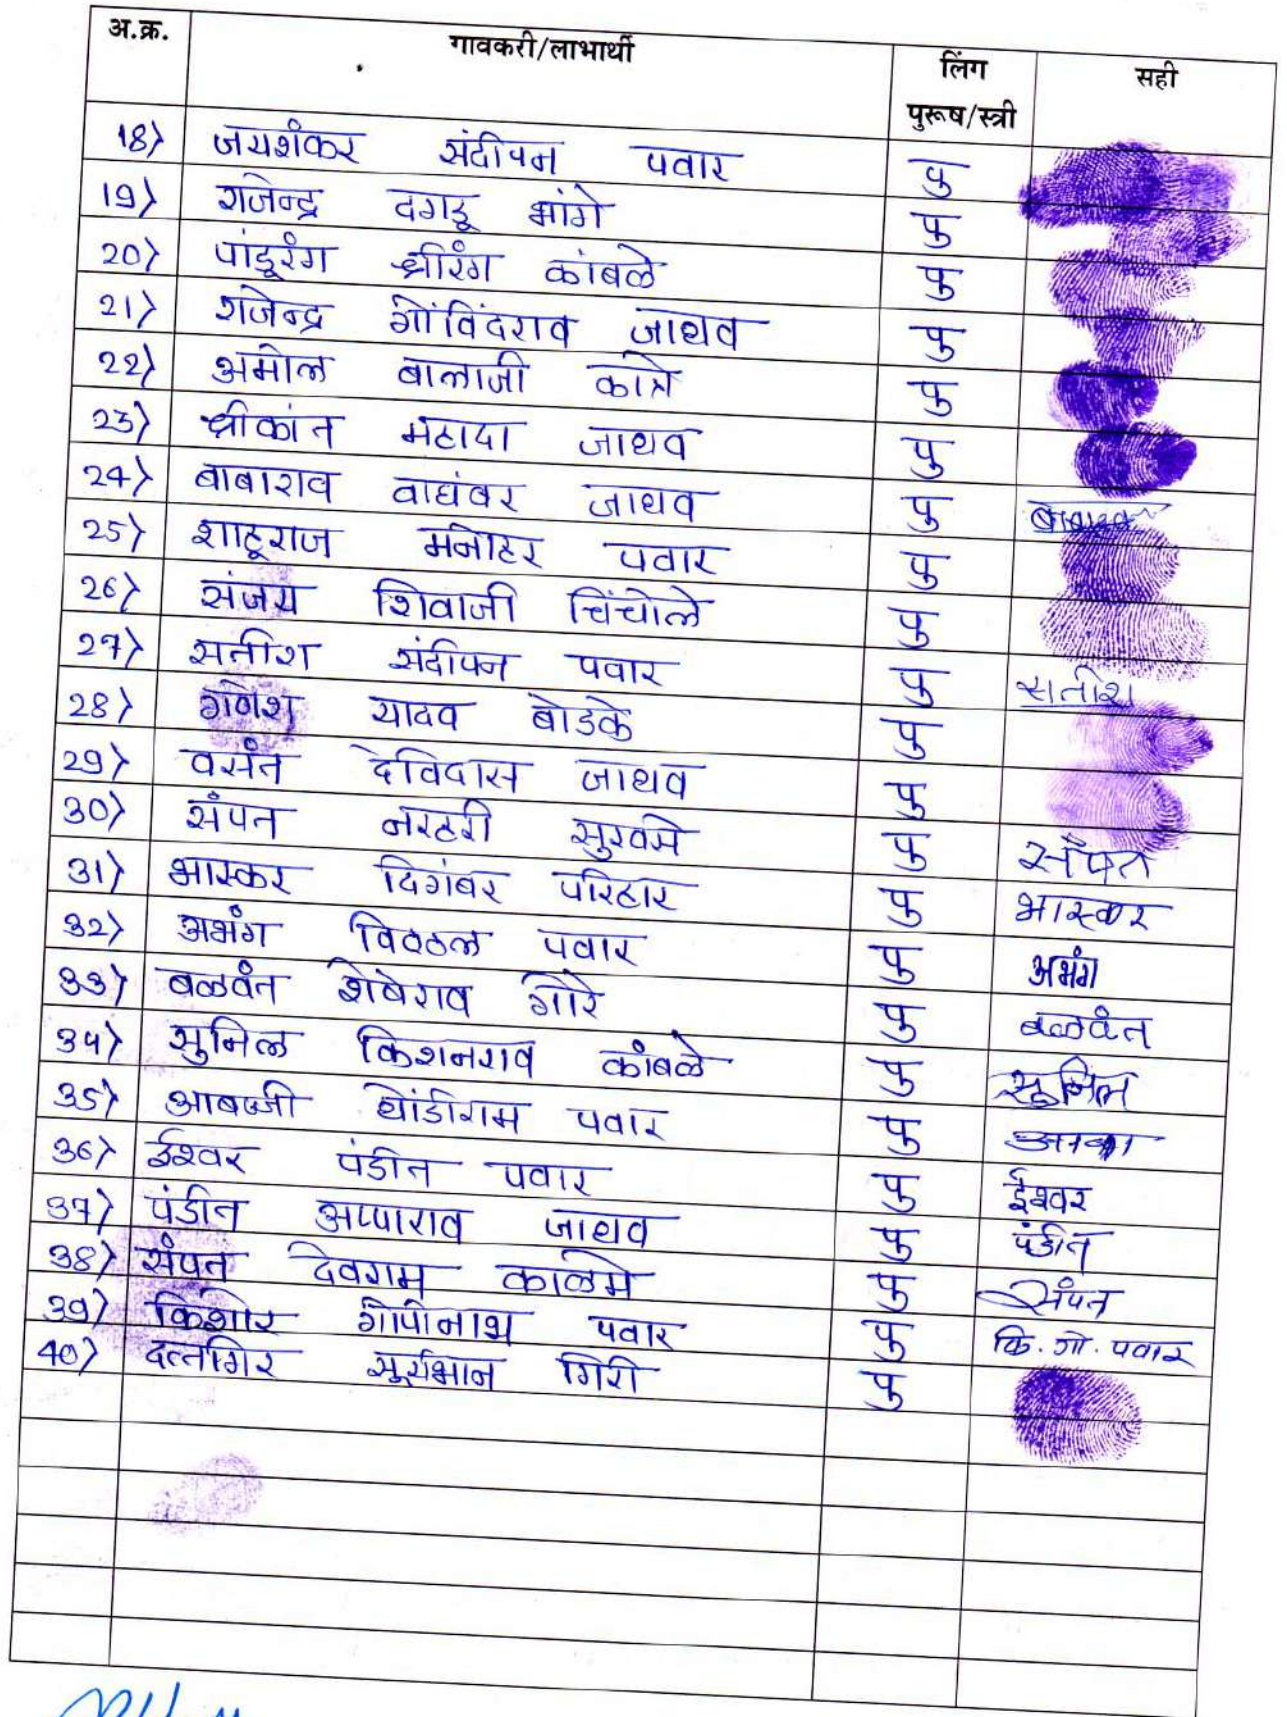 अ.क्र. गावकरी/लाभार्थी लिंग पुरूष/स्त्री सही
18) जयशंकर संदीपन पवार पु
19) राजेन्द्र दगडू भांगे पु
20) पांडूरंग श्रीरंग कांबळे पु
21) राजेन्द्र गोविंदराव जाधव पु
22) अमोल बालाजी पु
23) श्रीकांत महादा जाधव पु
24) बाबाराव वाघंबर जाधव पु बाबाराव
25) शाहूराज मनोहर पवार पु
26) संजय शिवाजी चिंचोले पु
27) सतीश संदीपन पवार पु सतीश
28) गणेश यादव बोडके पु
29) वसंत देविदास जाधव पु
30) संपत नरहरी सुरवसे पु संपत
31) भास्कर दिगंबर परिहार पु भास्कर
32) अभंग विठ्ठल पवार पु अभंग
33) बळवंत शेषेराव गोरे पु बळवंत
34) सुनिल किशनराव कांबळे पु सुनिल
35) आबाजी धोंडीराम पवार पु आबा
36) ईश्वर पंडीत पवार पु ईश्वर
37) पंडीत अप्पाराव जाधव पु पंडीत
38) संपत देवराम काळमे पु संपत
39) किशोर गोपीनाथ पवार पु कि. गो. पवार
40) दत्तगिर सूर्यभान गिरी पु